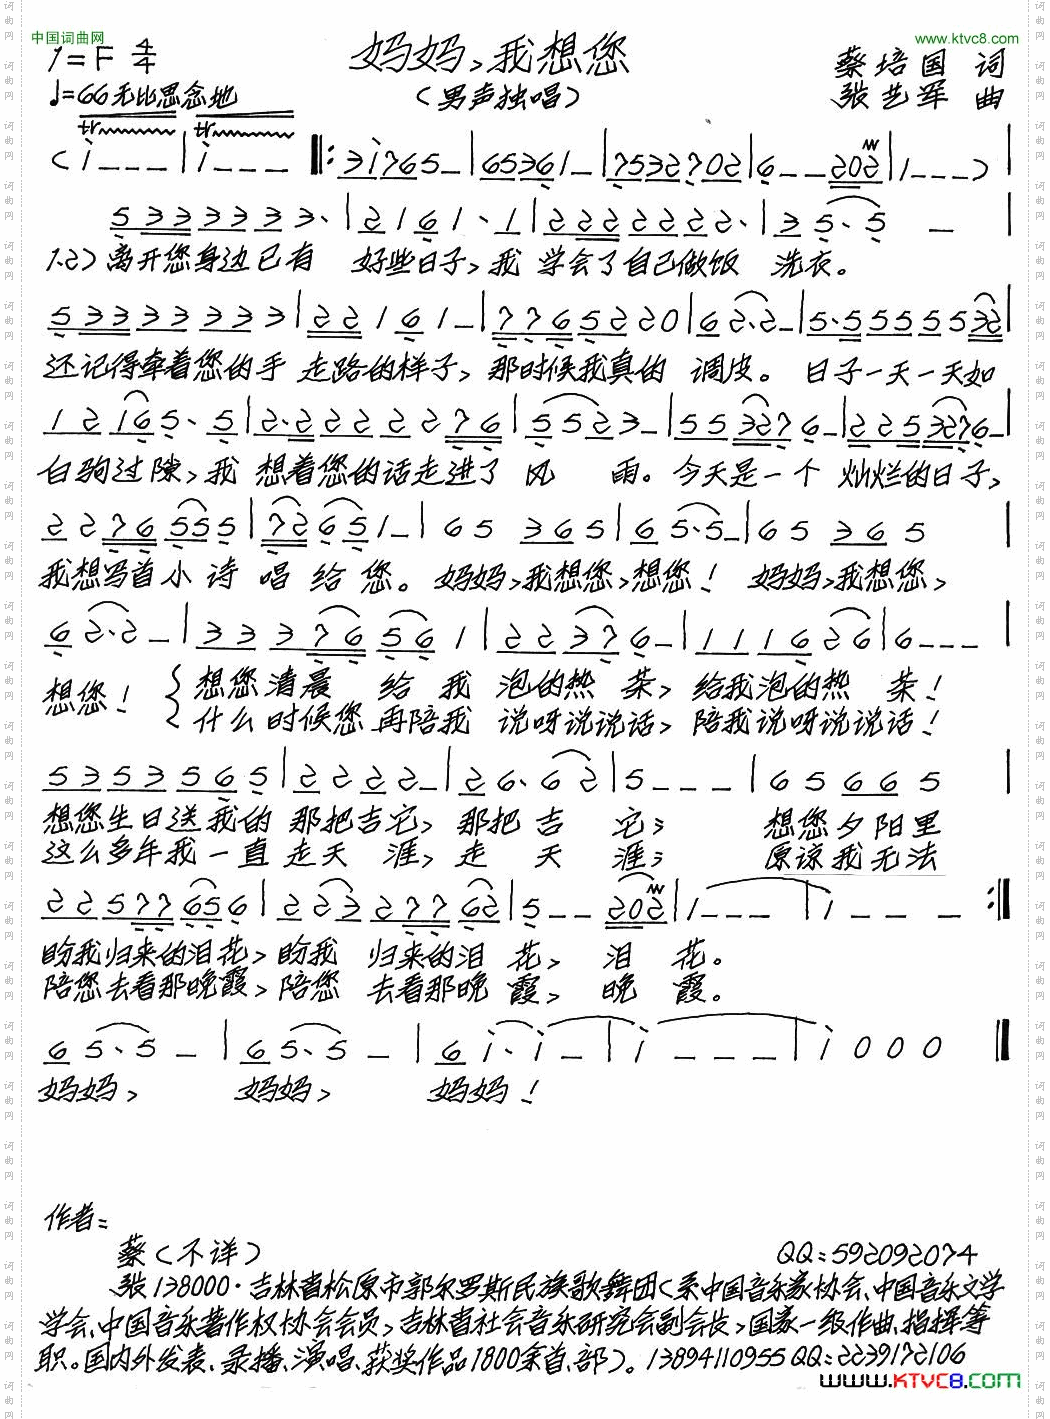 中国词曲网
www.ktvc8.com
1=F 4/4
妈妈,我想您
蔡培国 词
♩=66无比思念地
(男声独唱)
张艺军 曲
tr tr
(i---|i---‖:31765_|65361_|7532702|6__202|1___)|
5333333·|2161·1|2222222·|35·5_|
1.2)离开您身边已有 好些日子,我 学会了自己做饭 洗衣。
53333333|22161_|77652220|62·2_|5·5555532|
还记得牵着您的手 走路的样子,那时候我真的 调皮。日子一天一天如
12165·5|2·2222276|55223_|553276_|2253276_|
白驹过隙,我 想着您的话走进了 风 雨。今天是一个 灿烂的日子,
22765555|72651_|65 365|65·5_|65 365|
我想写首小诗 唱给您。妈妈,我想您,想您! 妈妈,我想您,
62·2_|33376561|22376_|111626|6___|
想您!
想您清晨 给我 泡的热茶,给我泡的热 茶!
什么时候您再陪我 说呀说说话,陪我说呀说说话!
5353565|2222_|26·62|5___|65665|
想您生日送我的 那把吉它,那把吉 它; 想您夕阳里
这么多年我一直走天 涯,走 天 涯; 原谅我无法
22577656|22327762|5__202|1___|i___:‖
盼我归来的泪花,盼我 归来的泪 花, 泪 花。
陪您去看那晚霞,陪您 去看那晚 霞, 晚 霞。
65·5_|65·5_|6i·i_|i___|i000‖
妈妈, 妈妈, 妈妈!
作者:
蔡(不详)
QQ:592092074
张138000·吉林省松原市郭尔罗斯民族歌舞团(系中国音乐家协会、中国音乐文学
学会、中国音乐著作权协会会员,吉林省社会音乐研究会副会长,国家一级作曲、指挥等
职。国内外发表、录播、演唱、获奖作品1800余首、部)。13894110955QQ:2239172106
www.KTVC8.com